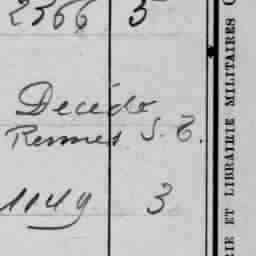 2366 5
Decédé
Rennes S. T.
1149 3
RIE ET LIBRAIRIE MILITAIRES